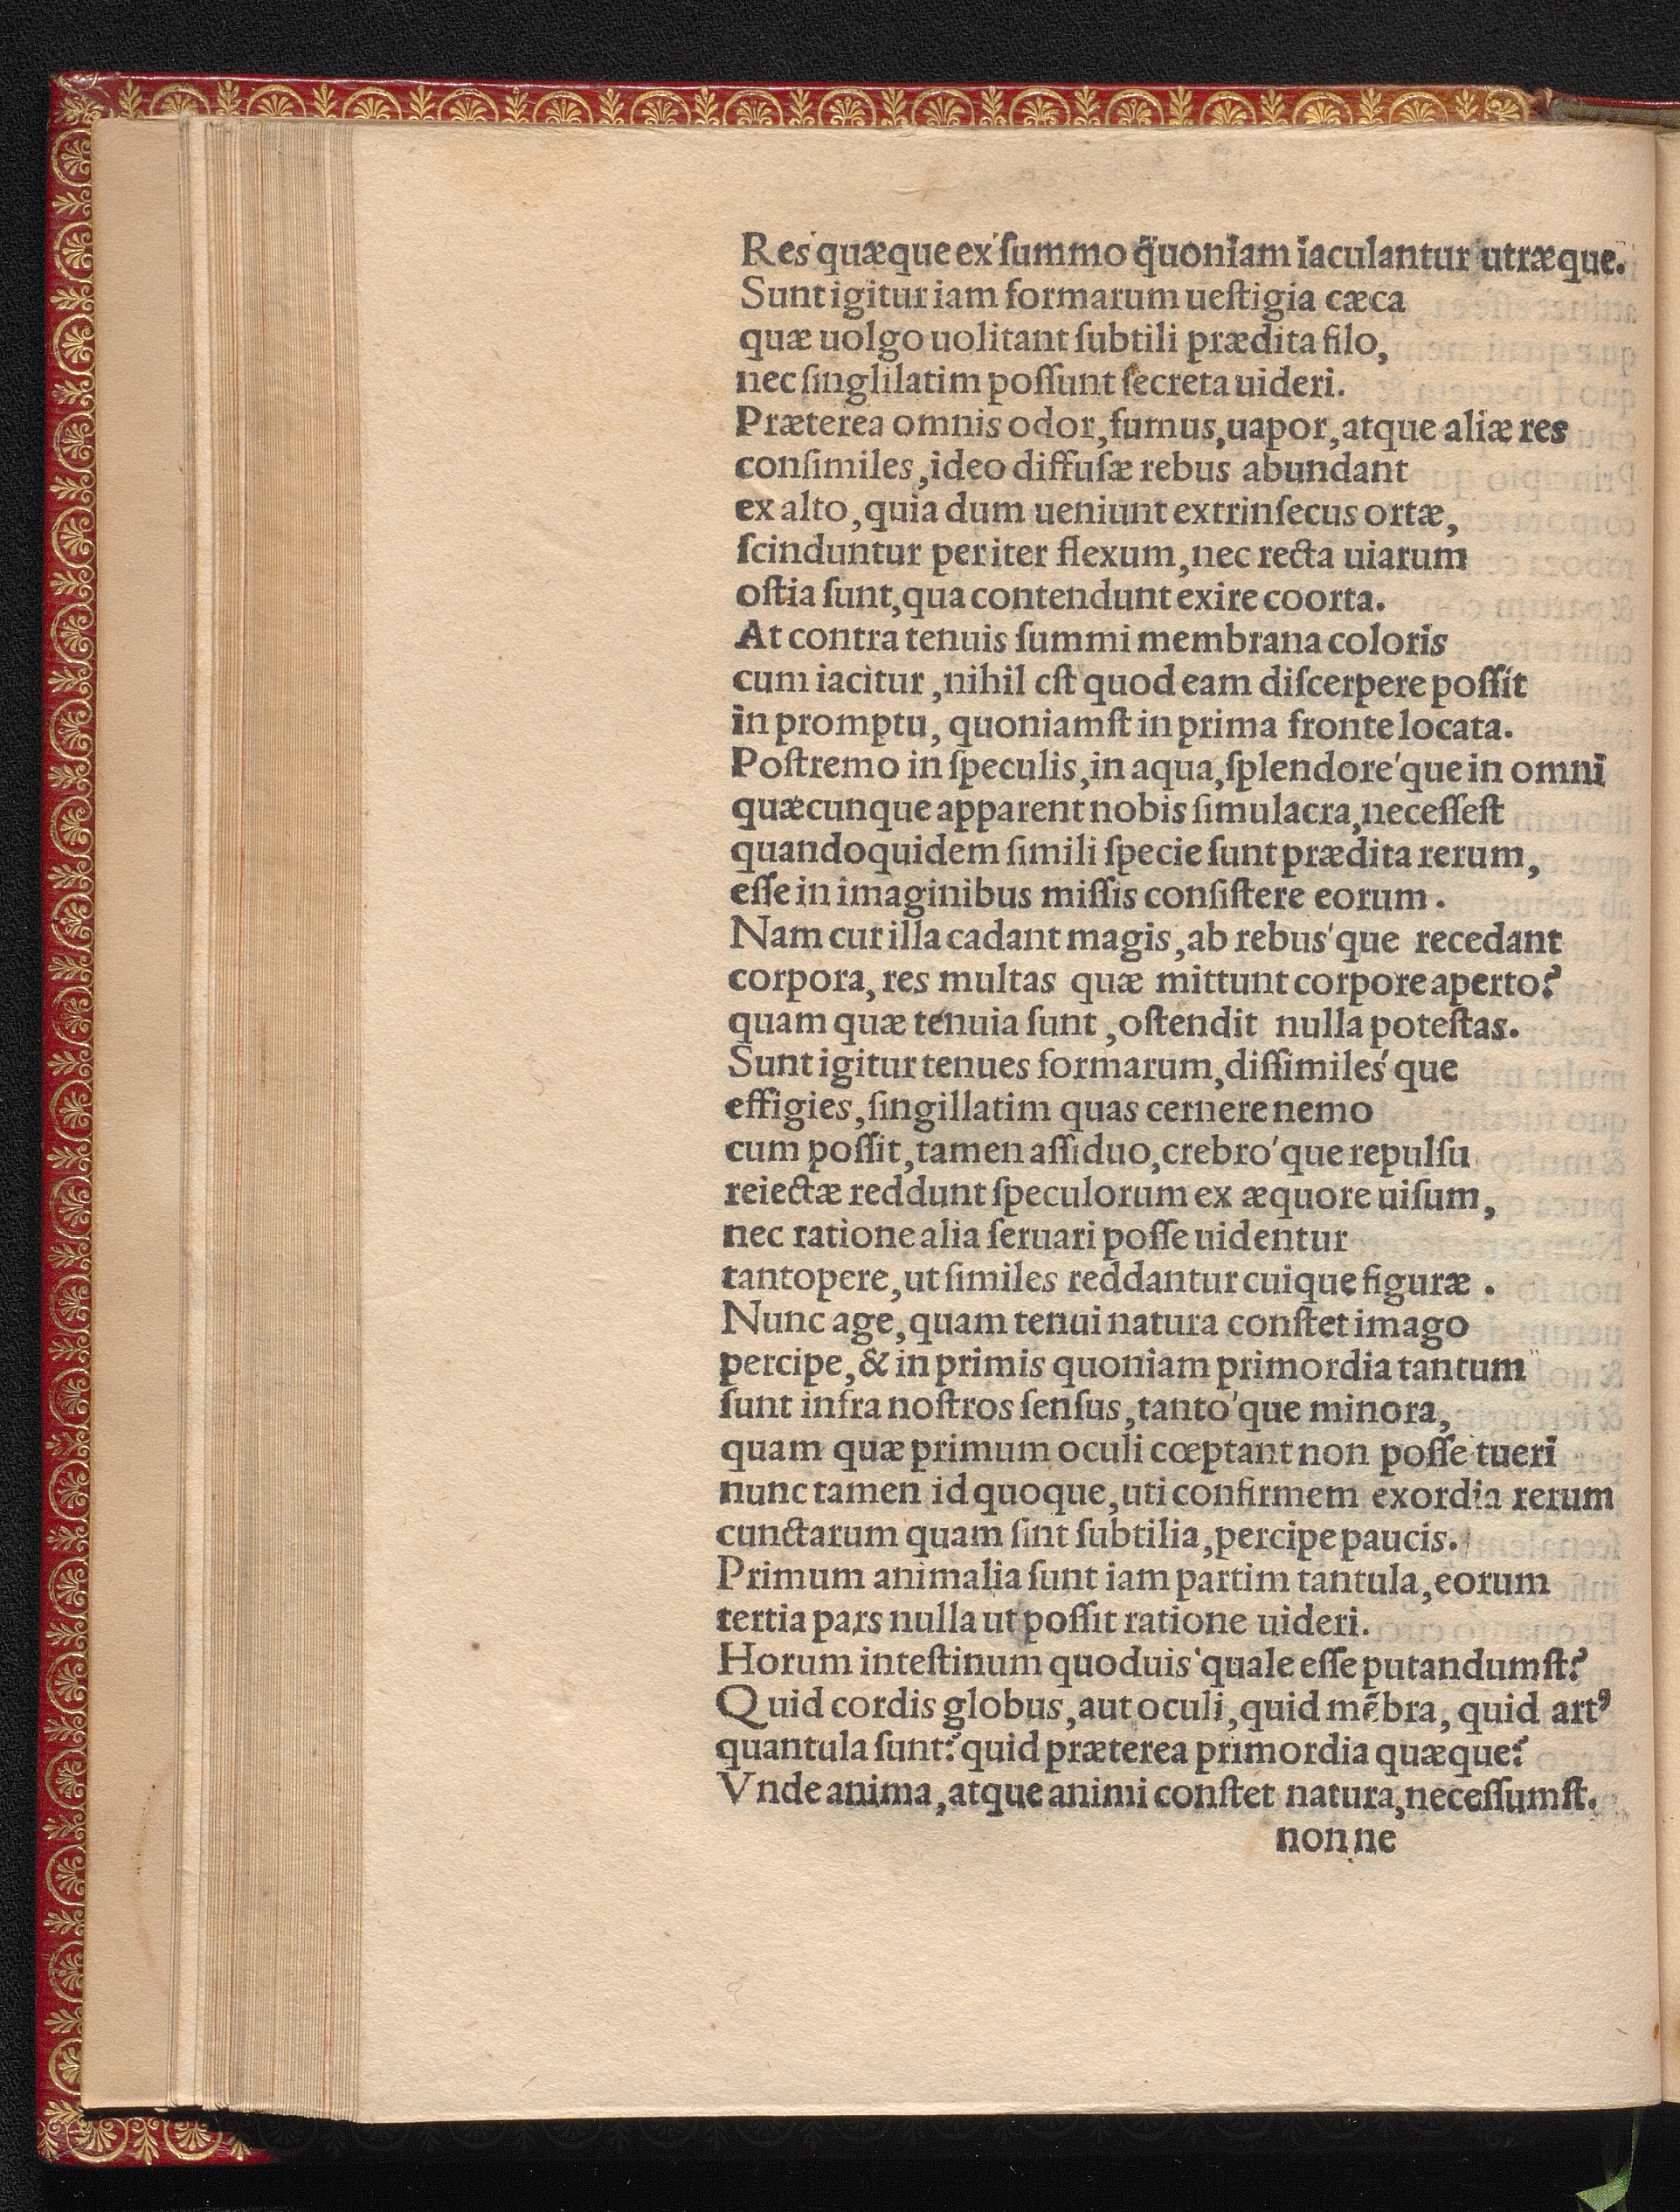 Res quæque ex ſummo quoniam iaculantur utræque.
Sunt igitur iam formarum ueſtigia cæca
quæ uolgo uolitant ſubtili prædita filo,
nec ſinglilatim poſſunt ſecreta uideri.
Præterea omnis odor, fumus, uapor, atque aliæ res
conſimiles, ideo diffuſæ rebus abundant
ex alto, quia dum ueniunt extrinſecus ortæ,
ſcinduntur per iter flexum, nec recta uiarum
oſtia ſunt, qua contendunt exire coorta.
At contra tenuis ſummi membrana coloris
cum iacitur, nihil eſt quod eam diſcerpere poſſit
in promptu, quoniamſt in prima fronte locata.
Poſtremo in ſpeculis, in aqua, ſplendore'que in omni
quæcunque apparent nobis ſimulacra, neceſſeſt
quandoquidem ſimili ſpecie ſunt prædita rerum,
eſſe in imaginibus miſſis conſiſtere eorum.
Nam cur illa cadant magis, ab rebus'que recedant
corpora, res multas quæ mittunt corpore aperto?
quam quæ tenuia ſunt, oſtendit nulla poteſtas.
Sunt igitur tenues formarum, diſſimiles'que
effigies, ſingillatim quas cernere nemo
cum poſſit, tamen aſſiduo, crebro'que repulſu
reiectæ reddunt ſpeculorum ex æquore uiſum,
nec ratione alia ſeruari poſſe uidentur
tantopere, ut ſimiles reddantur cuique figuræ.
Nunc age, quam tenui natura conſtet imago
percipe, & in primis quoniam primordia tantum
ſunt infra noſtros ſenſus, tanto'que minora,
quam quæ primum oculi cœptant non poſſe tueri
nunc tamen id quoque, uti confirmem exordia rerum
cunctarum quam ſint ſubtilia, percipe paucis.
Primum animalia ſunt iam partim tantula, eorum
tertia pars nulla ut poſſit ratione uideri.
Horum inteſtinum quoduis'quale eſſe putandumſt?
Quid cordis globus, aut oculi, quid mẽbra, quid artꝰ
quantula ſunt? quid præterea primordia quæque?
Vnde anima, atque animi conſtet natura, neceſſumſt.
non ne